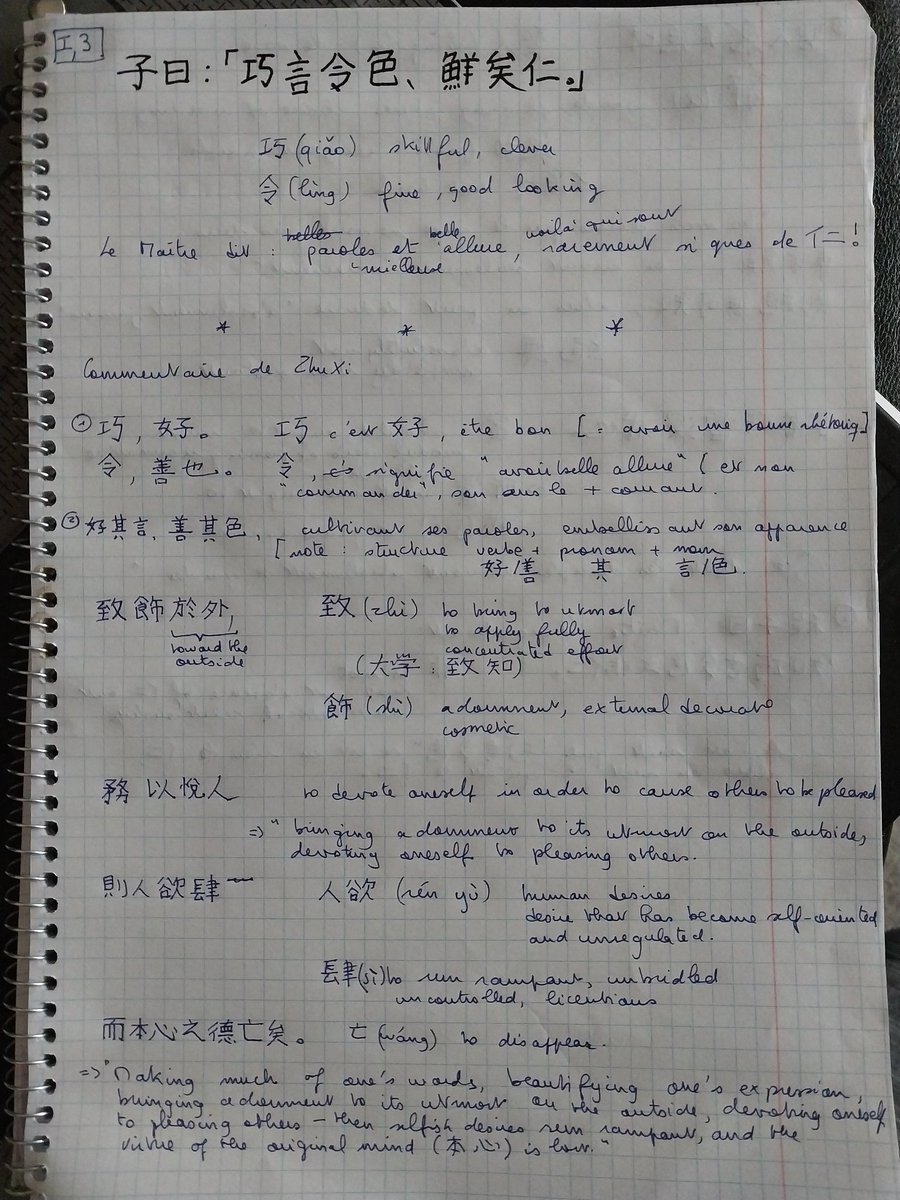 I,3
子曰：「巧言令色、鮮矣仁。」
巧 (qiǎo) skillful, clever
令 (lìng) fine, good looking
Le Maître dit : belles paroles et belle allure, voilà qui sont rarement signes de 仁 !
mielleuse
* * *
Commentaire de Zhu Xi
① 巧，好。 巧 c'est 好, être bon [= avoir une bonne rhétoriq]
令，善也。 令, signifie "avoir belle allure" ( et non
"commander", son sens le + courant.
② 好其言、善其色， cultivant ses paroles, embellissant son apparence
[note : structure verbe + pronom + nom
好/善 其 言/色.
致飾於外， 致 (zhì) to bring to utmost
toward the outside
to apply fully
concentrated effort
(大学 : 致知)
飾 (shì) adornment, external decorate
cosmetic
務以悅人 to devote oneself in order to cause others to be pleased
=> "bringing adornment to its utmost on the outside,
devoting oneself to pleasing others.
則人欲肆 人欲 (rén yù) human desires
desire that has become self-oriented
and unregulated.
肆 (sì) to run rampant, unbridled
uncontrolled, licentious
而本心之德亡矣。 亡 (wáng) to disappear.
=> "Making much of one's words, beautifying one's expression,
bringing adornment to its utmost on the outside, devoting oneself
to pleasing others – then selfish desires run rampant, and the
virtue of the original mind (本心) is lost."